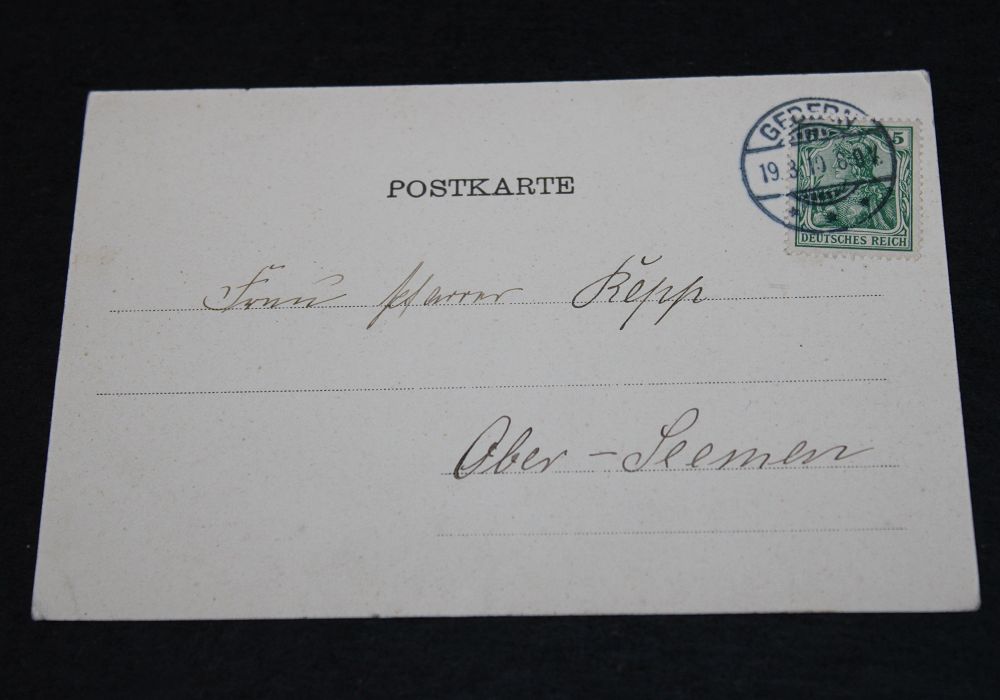 GEDERN
5
19.3.10. 8-9 V.
DEUTSCHES REICH
POSTKARTE
Frau Pfarrer Kepp
Ober-Seemen